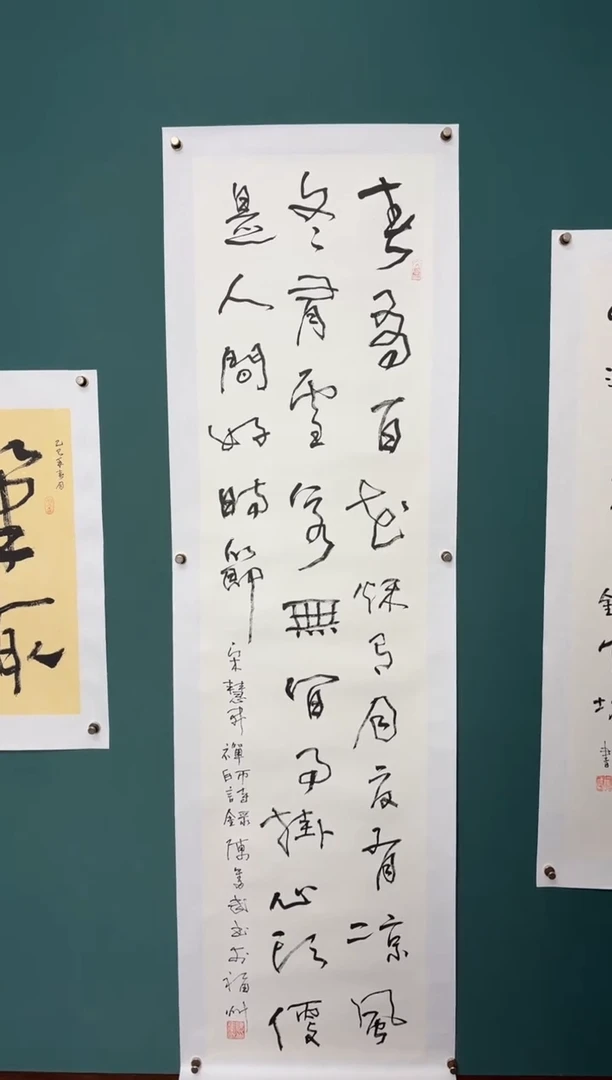 春有百花秋有月夏有凉風
冬有雪若無閒事掛心頭便
是人間好時節
宋慧開禪師 語錄 陳 武書於福州
乙巳年